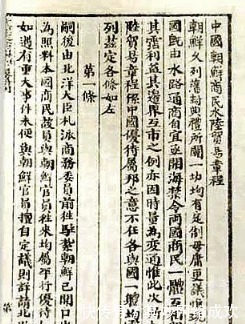 中國朝鮮商民水陸貿易章程
朝鮮久列藩封典禮所關一切均有定制毋庸更議惟
國既由水路通商自宜亟開海禁令兩國商民一體互
霑利益其邊界互市之例亦因時量為變通惟此次
陸貿易章程係中國優待屬邦之意不在各與國一體均
列茲定各條如左
第 條
嗣後由北洋大臣札派商務委員前往駐紮朝鮮已開口
為照料本國商民該員與朝鮮官員往來均屬平行優待
如遇有重大事件未便與朝鮮官員擅自定議則詳請北
第